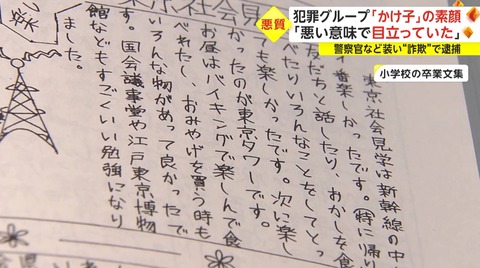 悪質
犯罪グループ「かけ子」の素顔
「悪い意味で目立っていた」
警察官など装い“詐欺”で逮捕
小学校の卒業文集
東京社会見学
東京社会見学は新幹線の中
一番楽しかったです。特に帰り
友だちと話したり、おかしを食
べたりいろんなことをしてとっ
ても楽しかったです。次に楽し
かったのが東京タワーです。
お昼はバイキングで楽しんで食
れた。おみやげを買う時も
いろんな物があって良かったで
す。国会議事堂や江戸東京博物
館などもすごくいい勉強になり
ました。